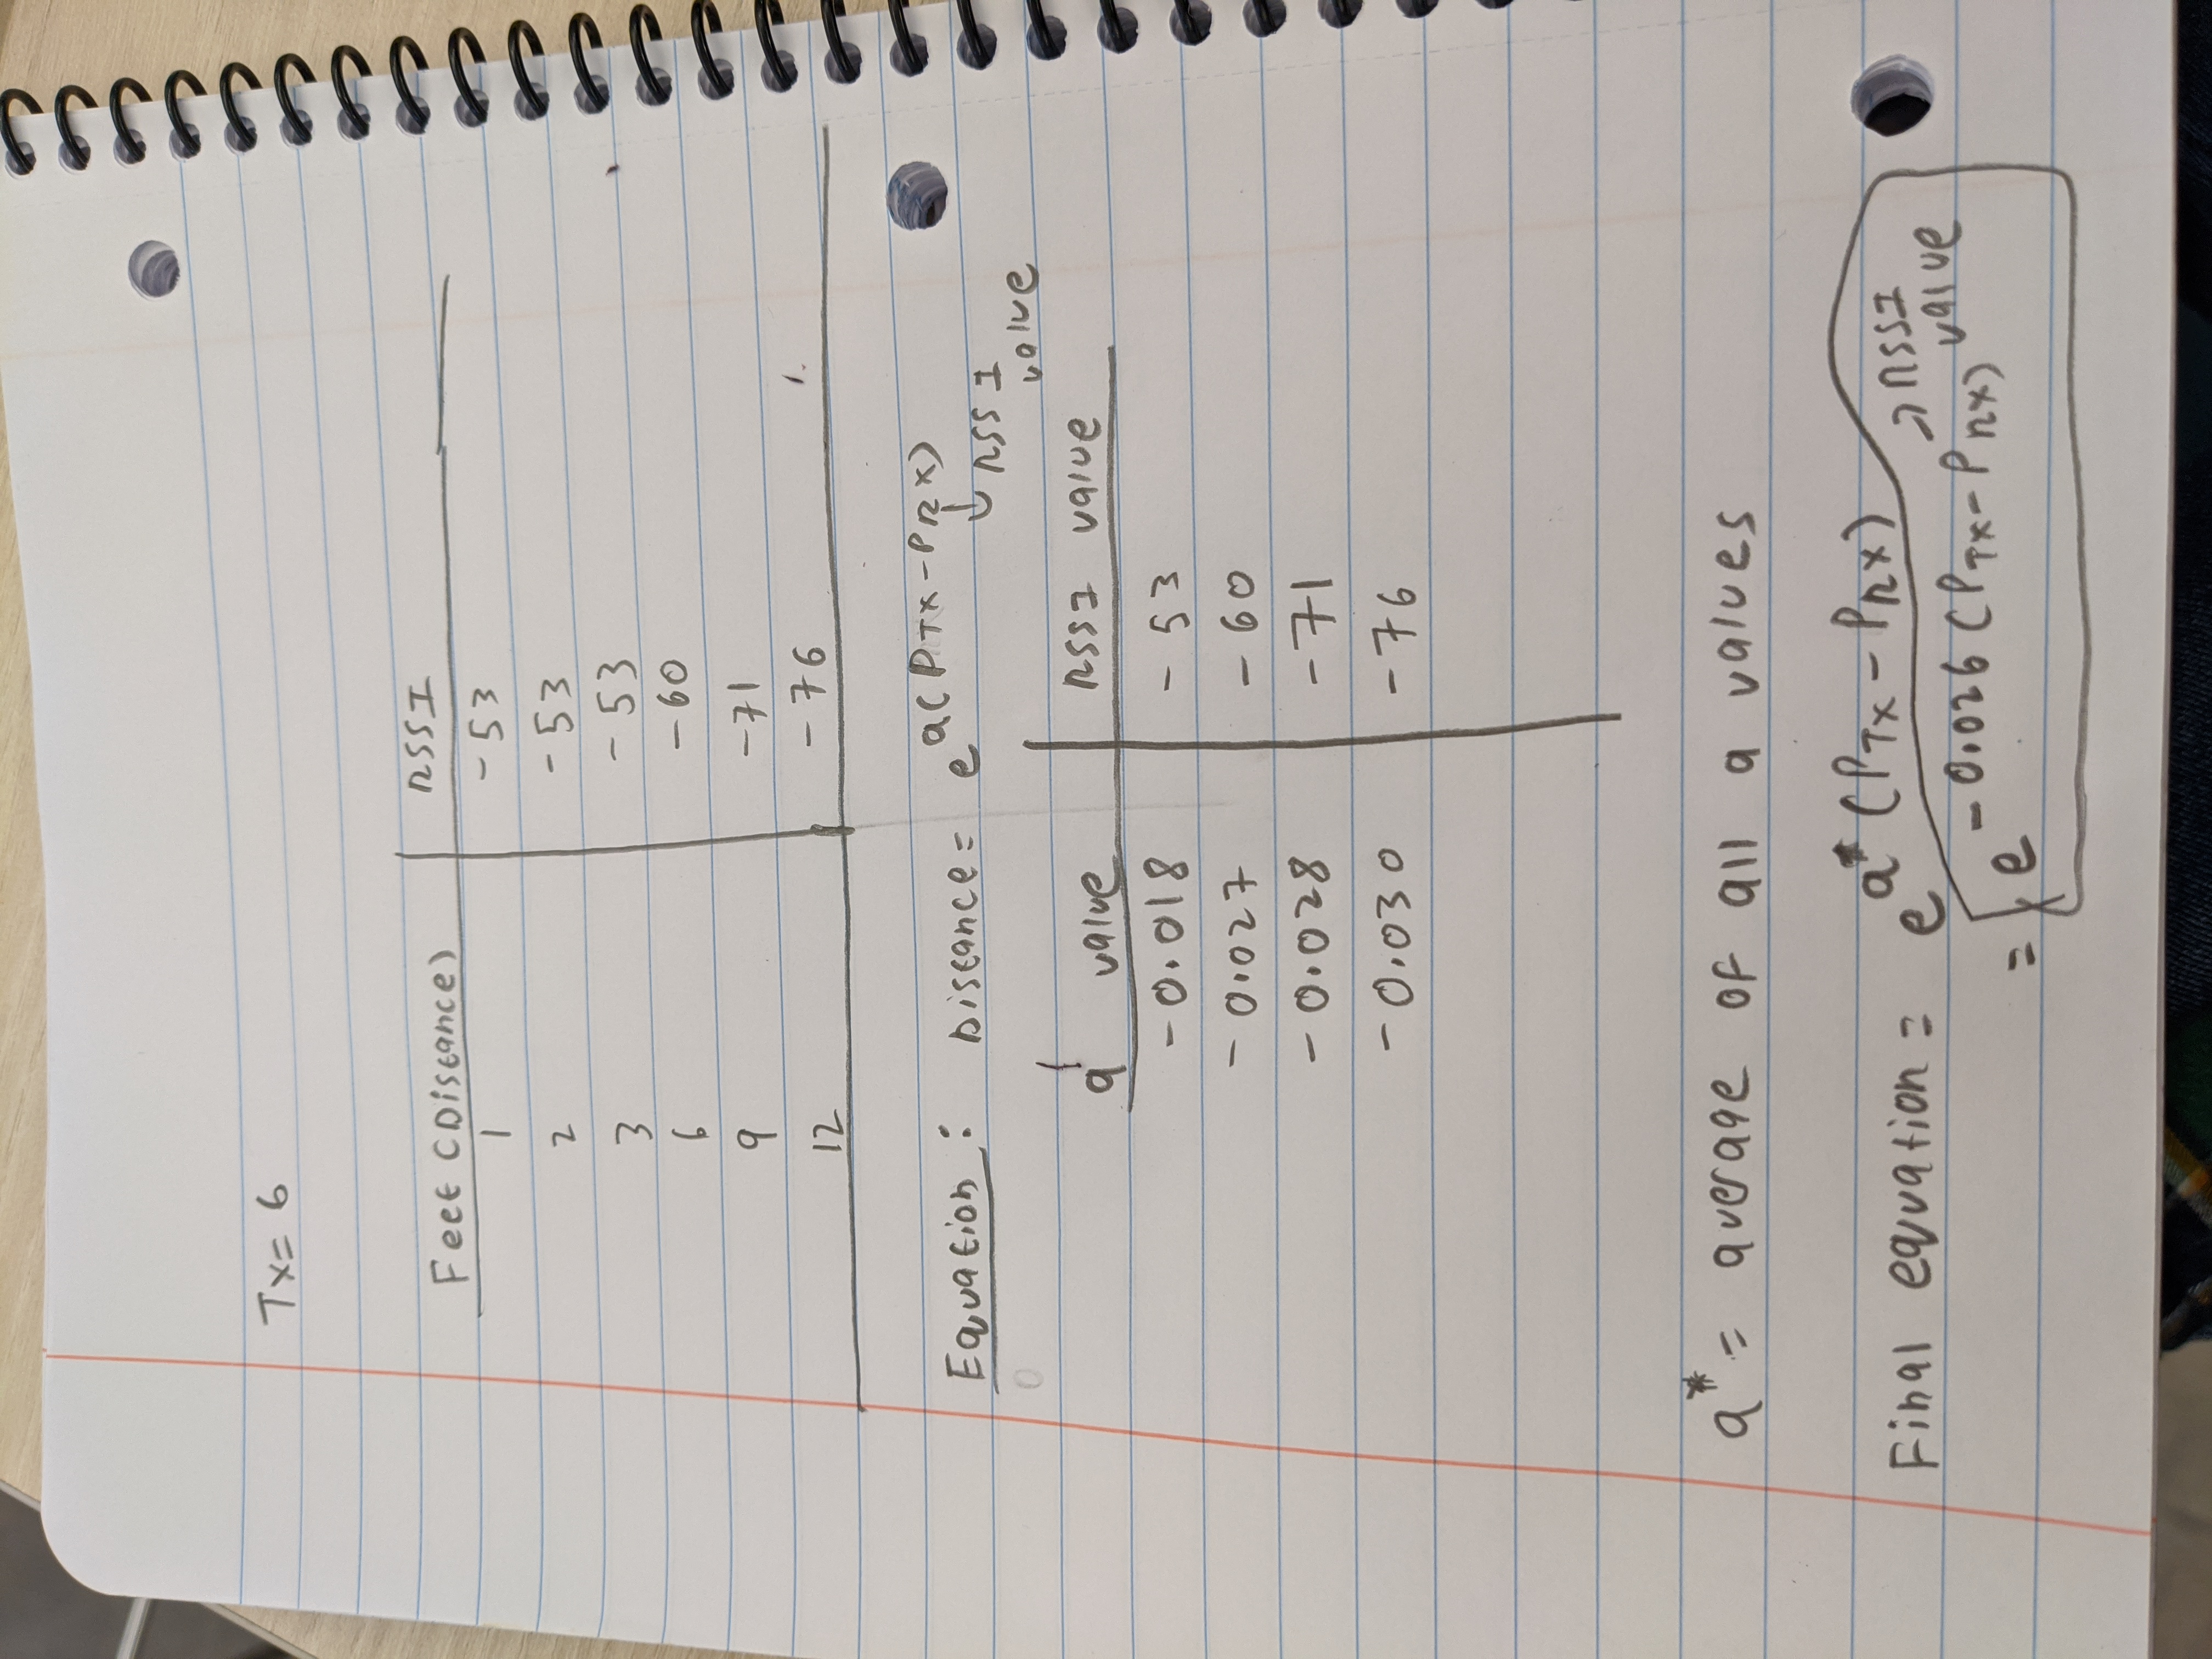 Tx= 6
Feet (Distance) RSSI
1 -53
2 -53
3 -53
6 -60
9 -71
12 -76
Equation: Distance = e^a(PTX-PRX)
↓ RSSI value
a value RSSI value
-0.018 -53
-0.027 -60
-0.028 -71
-0.030 -76
a* = average of all a values
Final equation = e^a*(PTX-PRX)
→ RSSI value
= e^-0.026(PTX-PRX)